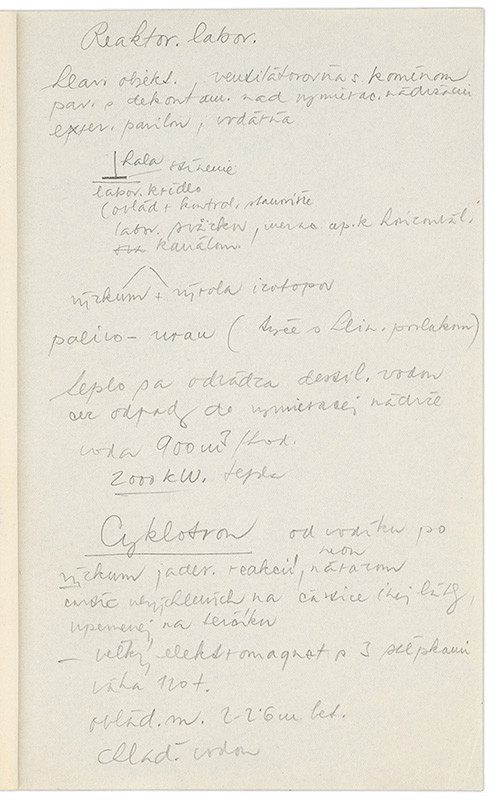 Reaktor. labor.
hlav. objekt. ventilátorovňa s komínom
pav. s dekontam. nad vymierac. nádržami
exter. pavilon, vodáreň
hala
labor. krídlo
(ovlád + kontrol. stanovište
labor. zväzkov, k horizontál.
kanálom.
výzkum + výroba izotopov
palivo - uran ( tyče s hlin. povlakom)
teplo sa odvádza destil. vodou
cez odpady do vymieracej nádrže
voda 900 m³/hod.
2000 kW. tepla
Cyklotron od vodíku po
neon
výzkum jader. reakcií, nárazom
častíc urýchlených na částice inej látky,
upevnenej na terčíku
- veľký elektromagnet s 3 stĺpkami
váha 120 t.
ovlád. m. 2-2·6 m bet.
chlad. vodou